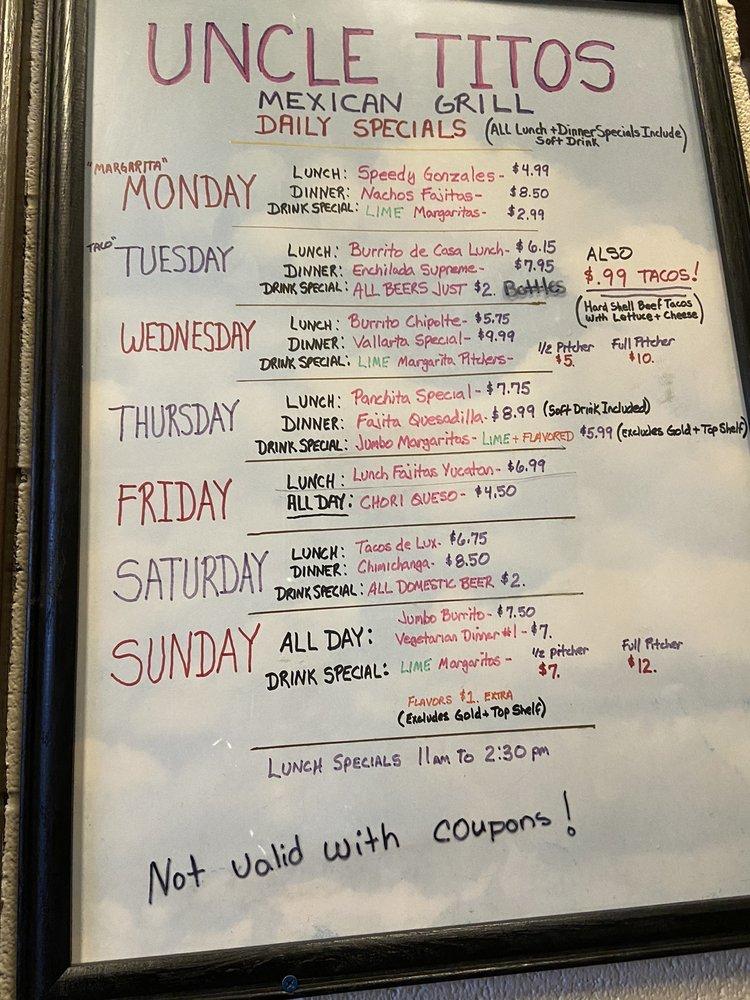 UNCLE TITOS
MEXICAN GRILL
DAILY SPECIALS (ALL Lunch + Dinner Specials Include) Soft Drink
"MARGARITA"
MONDAY
LUNCH: Speedy Gonzales - $4.99
DINNER: Nachos Fajitas - $8.50
DRINK SPECIAL: LIME Margaritas - $2.99
"TACO"
TUESDAY
LUNCH: Burrito de Casa Lunch - $6.15
DINNER: Enchilada Supreme - $7.95
DRINK SPECIAL: ALL BEERS JUST $2. Bottles
ALSO
$.99 TACOS!
(Hard Shell Beef Tacos
With Lettuce + Cheese)
WEDNESDAY
LUNCH: Burrito Chipolte - $5.75
DINNER: Vallarta Special - $9.99
DRINK SPECIAL: LIME Margarita Pitchers -
1/2 Pitcher $5.
Full Pitcher $10.
THURSDAY
LUNCH: Panchita Special - $7.75
DINNER: Fajita Quesadilla - $8.99 (Soft Drink Included)
DRINK SPECIAL: Jumbo Margaritas - LIME + FLAVORED $5.99 (excludes Gold + Top Shelf)
FRIDAY
LUNCH: Lunch Fajitas Yucatan - $6.99
ALL DAY: CHORI QUESO - $4.50
SATURDAY
LUNCH: Tacos de Lux - $6.75
DINNER: Chimichanga - $8.50
DRINK SPECIAL: ALL DOMESTIC BEER $2.
SUNDAY
ALL DAY: Jumbo Burrito - $7.50
Vegetarian Dinner #1 - $7.
DRINK SPECIAL: LIME Margaritas -
1/2 Pitcher $7.
Full Pitcher $12.
FLAVORS $1. EXTRA
(Excludes Gold + Top Shelf)
LUNCH SPECIALS 11am To 2:30 pm
Not valid with coupons!